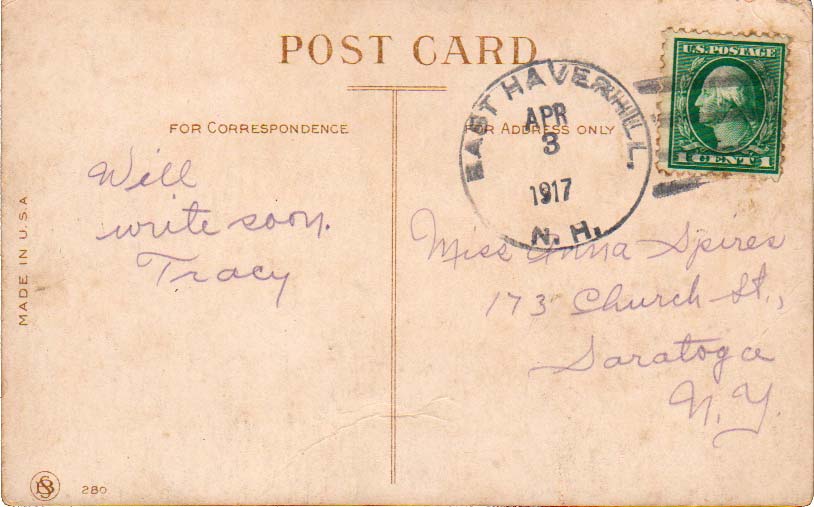 POST CARD
FOR CORRESPONDENCE
FOR ADDRESS ONLY
EAST HAVERHILL,
APR
3
1917
N. H.
U.S. POSTAGE
1 CENT 1
Will
write soon.
Tracy
Miss Anna Spires
173 Church St.,
Saratoga
N.Y.
MADE IN U.S.A
280